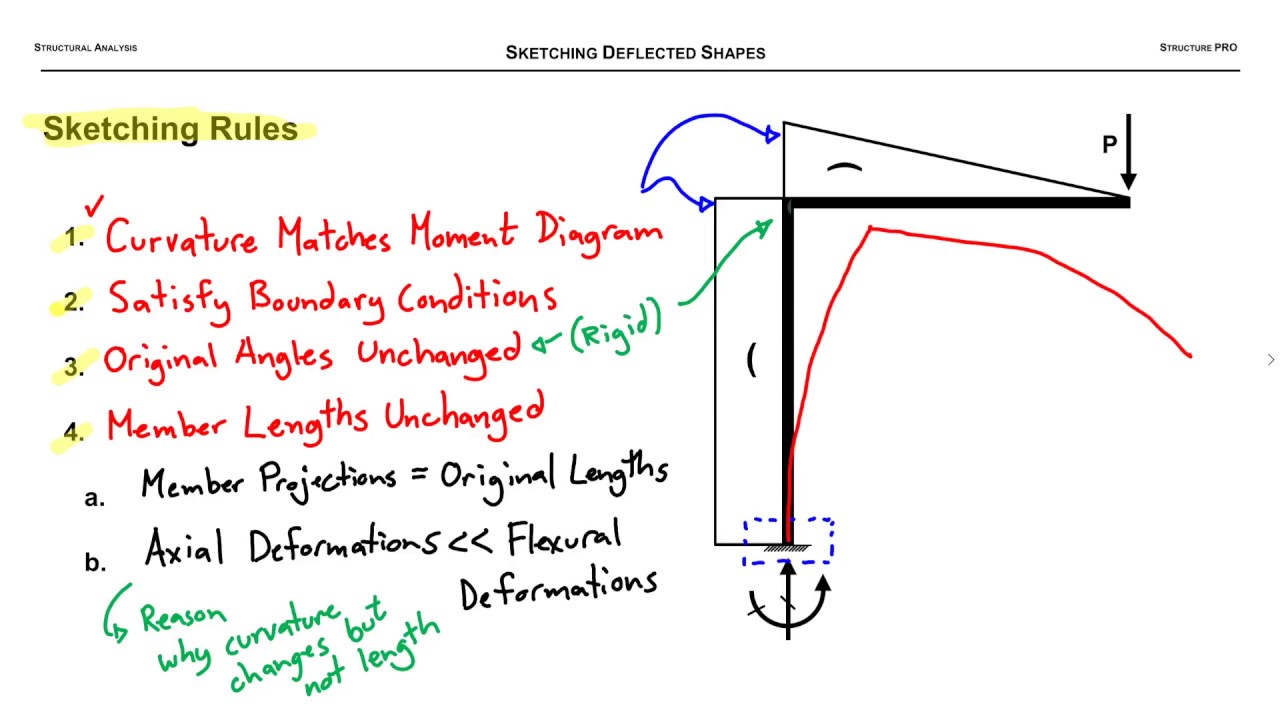 STRUCTURAL ANALYSIS
SKETCHING DEFLECTED SHAPES
STRUCTURE PRO
Sketching Rules
1. Curvature Matches Moment Diagram
2. Satisfy Boundary Conditions
3. Original Angles Unchanged (Rigid)
4. Member Lengths Unchanged
a. Member Projections = Original Lengths
b. Axial Deformations << Flexural
Deformations
Reason
why curvature
changes but
not length
P